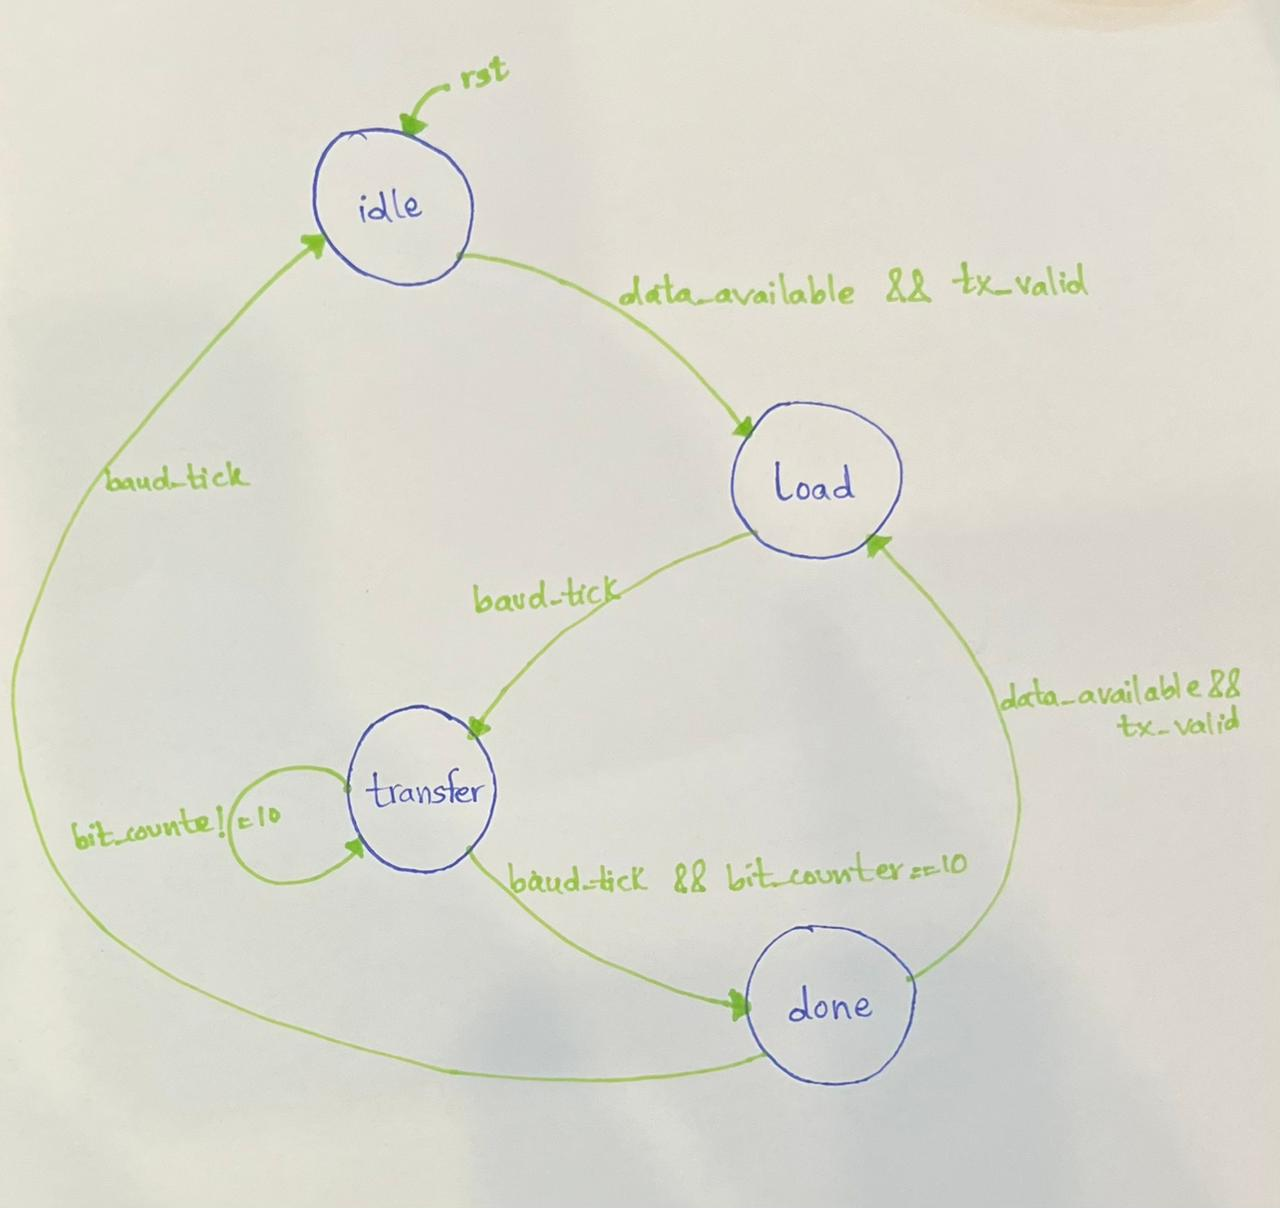 rst
idle
data_available && tx_valid
Load
baud_tick
baud_tick
data_available &&
tx_valid
transfer
bit_counte!=10
baud_tick && bit_counter==10
done